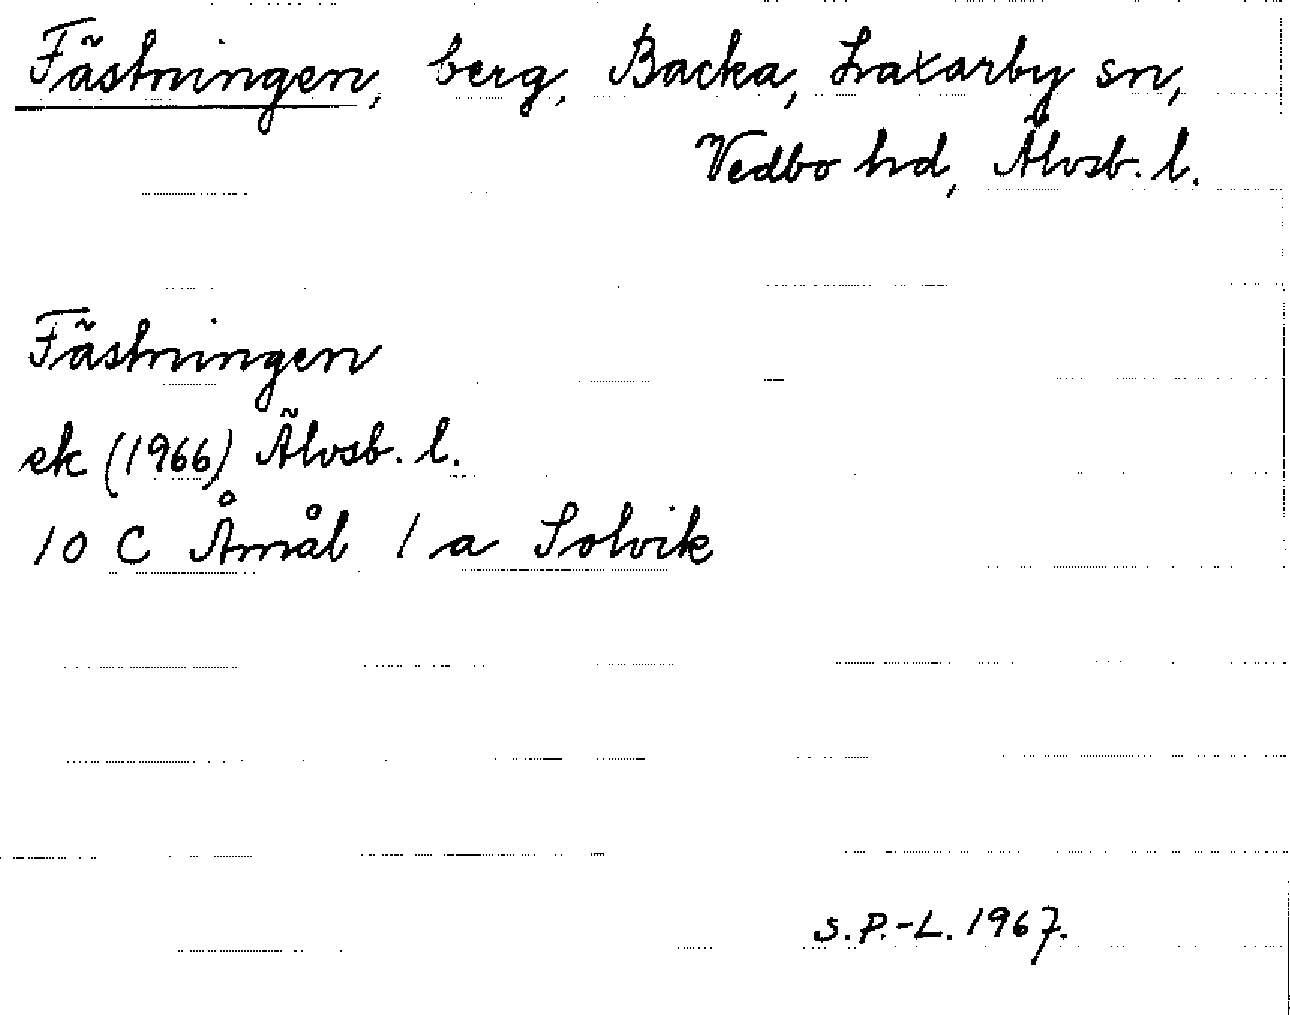 Fästningen, berg, Backa, Laxarby sn,
Vedbo hd, Älvsb. l.
Fästningen
ek (1966) Älvsb. l.
10 C Åmål 1 a Solvik
S.P.-L. 1967.